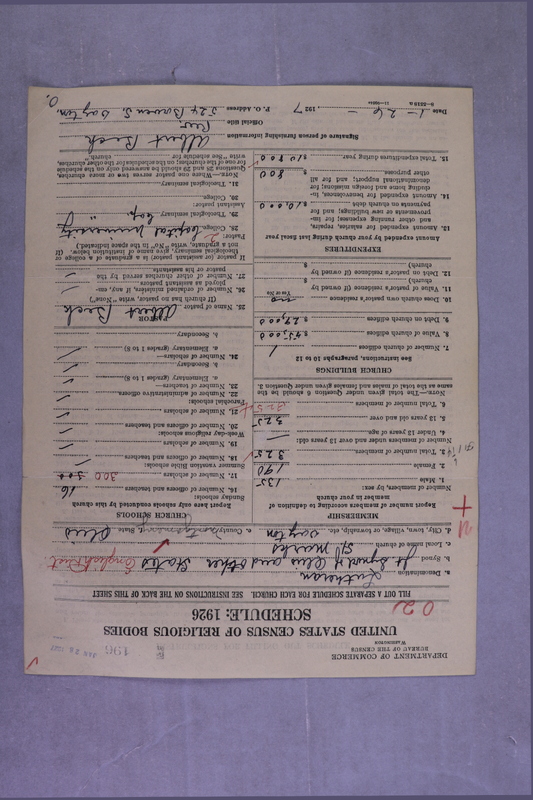 DEPARTMENT OF COMMERCE
BUREAU OF THE CENSUS
WASHINGTON
JAN 28 1927
UNITED STATES CENSUS OF RELIGIOUS BODIES
SCHEDULE: 1926
02
FILL OUT A SEPARATE SCHEDULE FOR EACH CHURCH. SEE INSTRUCTIONS ON THE BACK OF THIS SHEET
a. Denomination Lutheran
b. Synod Jt Synod of Ohio and other States English Dist.
c. Local name of church St Marks
d. City, town, village, or township, etc. Dayton
e. County Montgomery State Ohio
MEMBERSHIP
Report number of members according to definition of member in your church
Number of members, by sex:
1. Male 135
2. Female 190
3. Total number of members 325
Number of members under and over 13 years old:
4. Under 13 years of age
5. 13 years old and over 325
6. Total number of members 325
Note.—The total given under Question 6 should be the
same as the total of males and females given under Question 3.
See instructions, paragraphs 10 to 12
CHURCH BUILDINGS
7. Number of church edifices 1
8. Value of church edifices $ 45,000
9. Debt on church edifices $ 29,000
10. Does church own pastor's residence no
Yes or No
11. Value of pastor's residence (if owned by
church) $
12. Debt on pastor's residence (if owned by
church) $
EXPENDITURES
Amount expended by your church during last fiscal year
13. Amount expended for salaries, repairs,
and other running expenses; for im-
provements or new buildings; and for
payments on church debt
14. Amount expended for benevolences, in-
cluding home and foreign missions; for
denominational support; and for all
other purposes 800
15. Total expenditures during year
CHURCH SCHOOLS
Report here only schools conducted by this church
Sunday schools:
16. Number of officers and teachers 16
17. Number of scholars 300
Summer vacation Bible schools:
18. Number of officers and teachers
19. Number of scholars
Week-day religious schools:
20. Number of officers and teachers
21. Number of scholars
Parochial schools:
22. Number of administrative officers
23. Number of teachers—
a. Elementary (grades 1 to 8)
b. Secondary
24. Number of scholars—
a. Elementary (grades 1 to 8)
b. Secondary
PASTOR
25. Name of pastor Albert Beck
(If church has no pastor, write "None")
26. Number of ordained ministers, if any, em-
ployed as assistant pastors
27. Number of other churches served by the
pastor or his assistants
If pastor (or assistant pastor) is a graduate of a college or
theological seminary, give name of institution below. (If
not a graduate, write "No" in the space indicated.)
Pastor:
28. College Capital University
29. Theological seminary Cap. "
Assistant pastor:
30. College
31. Theological seminary
Note.—When a pastor serves two or more churches,
Questions 28 and 29 should be answered only on the schedule
for one of the churches; on the schedules for the other churches,
write "See schedule for church."
Signature of person furnishing information Albert Beck
Official title Rev
Date 1-26-, 1927
P. O. Address 524 Bowen S. Dayton, O.